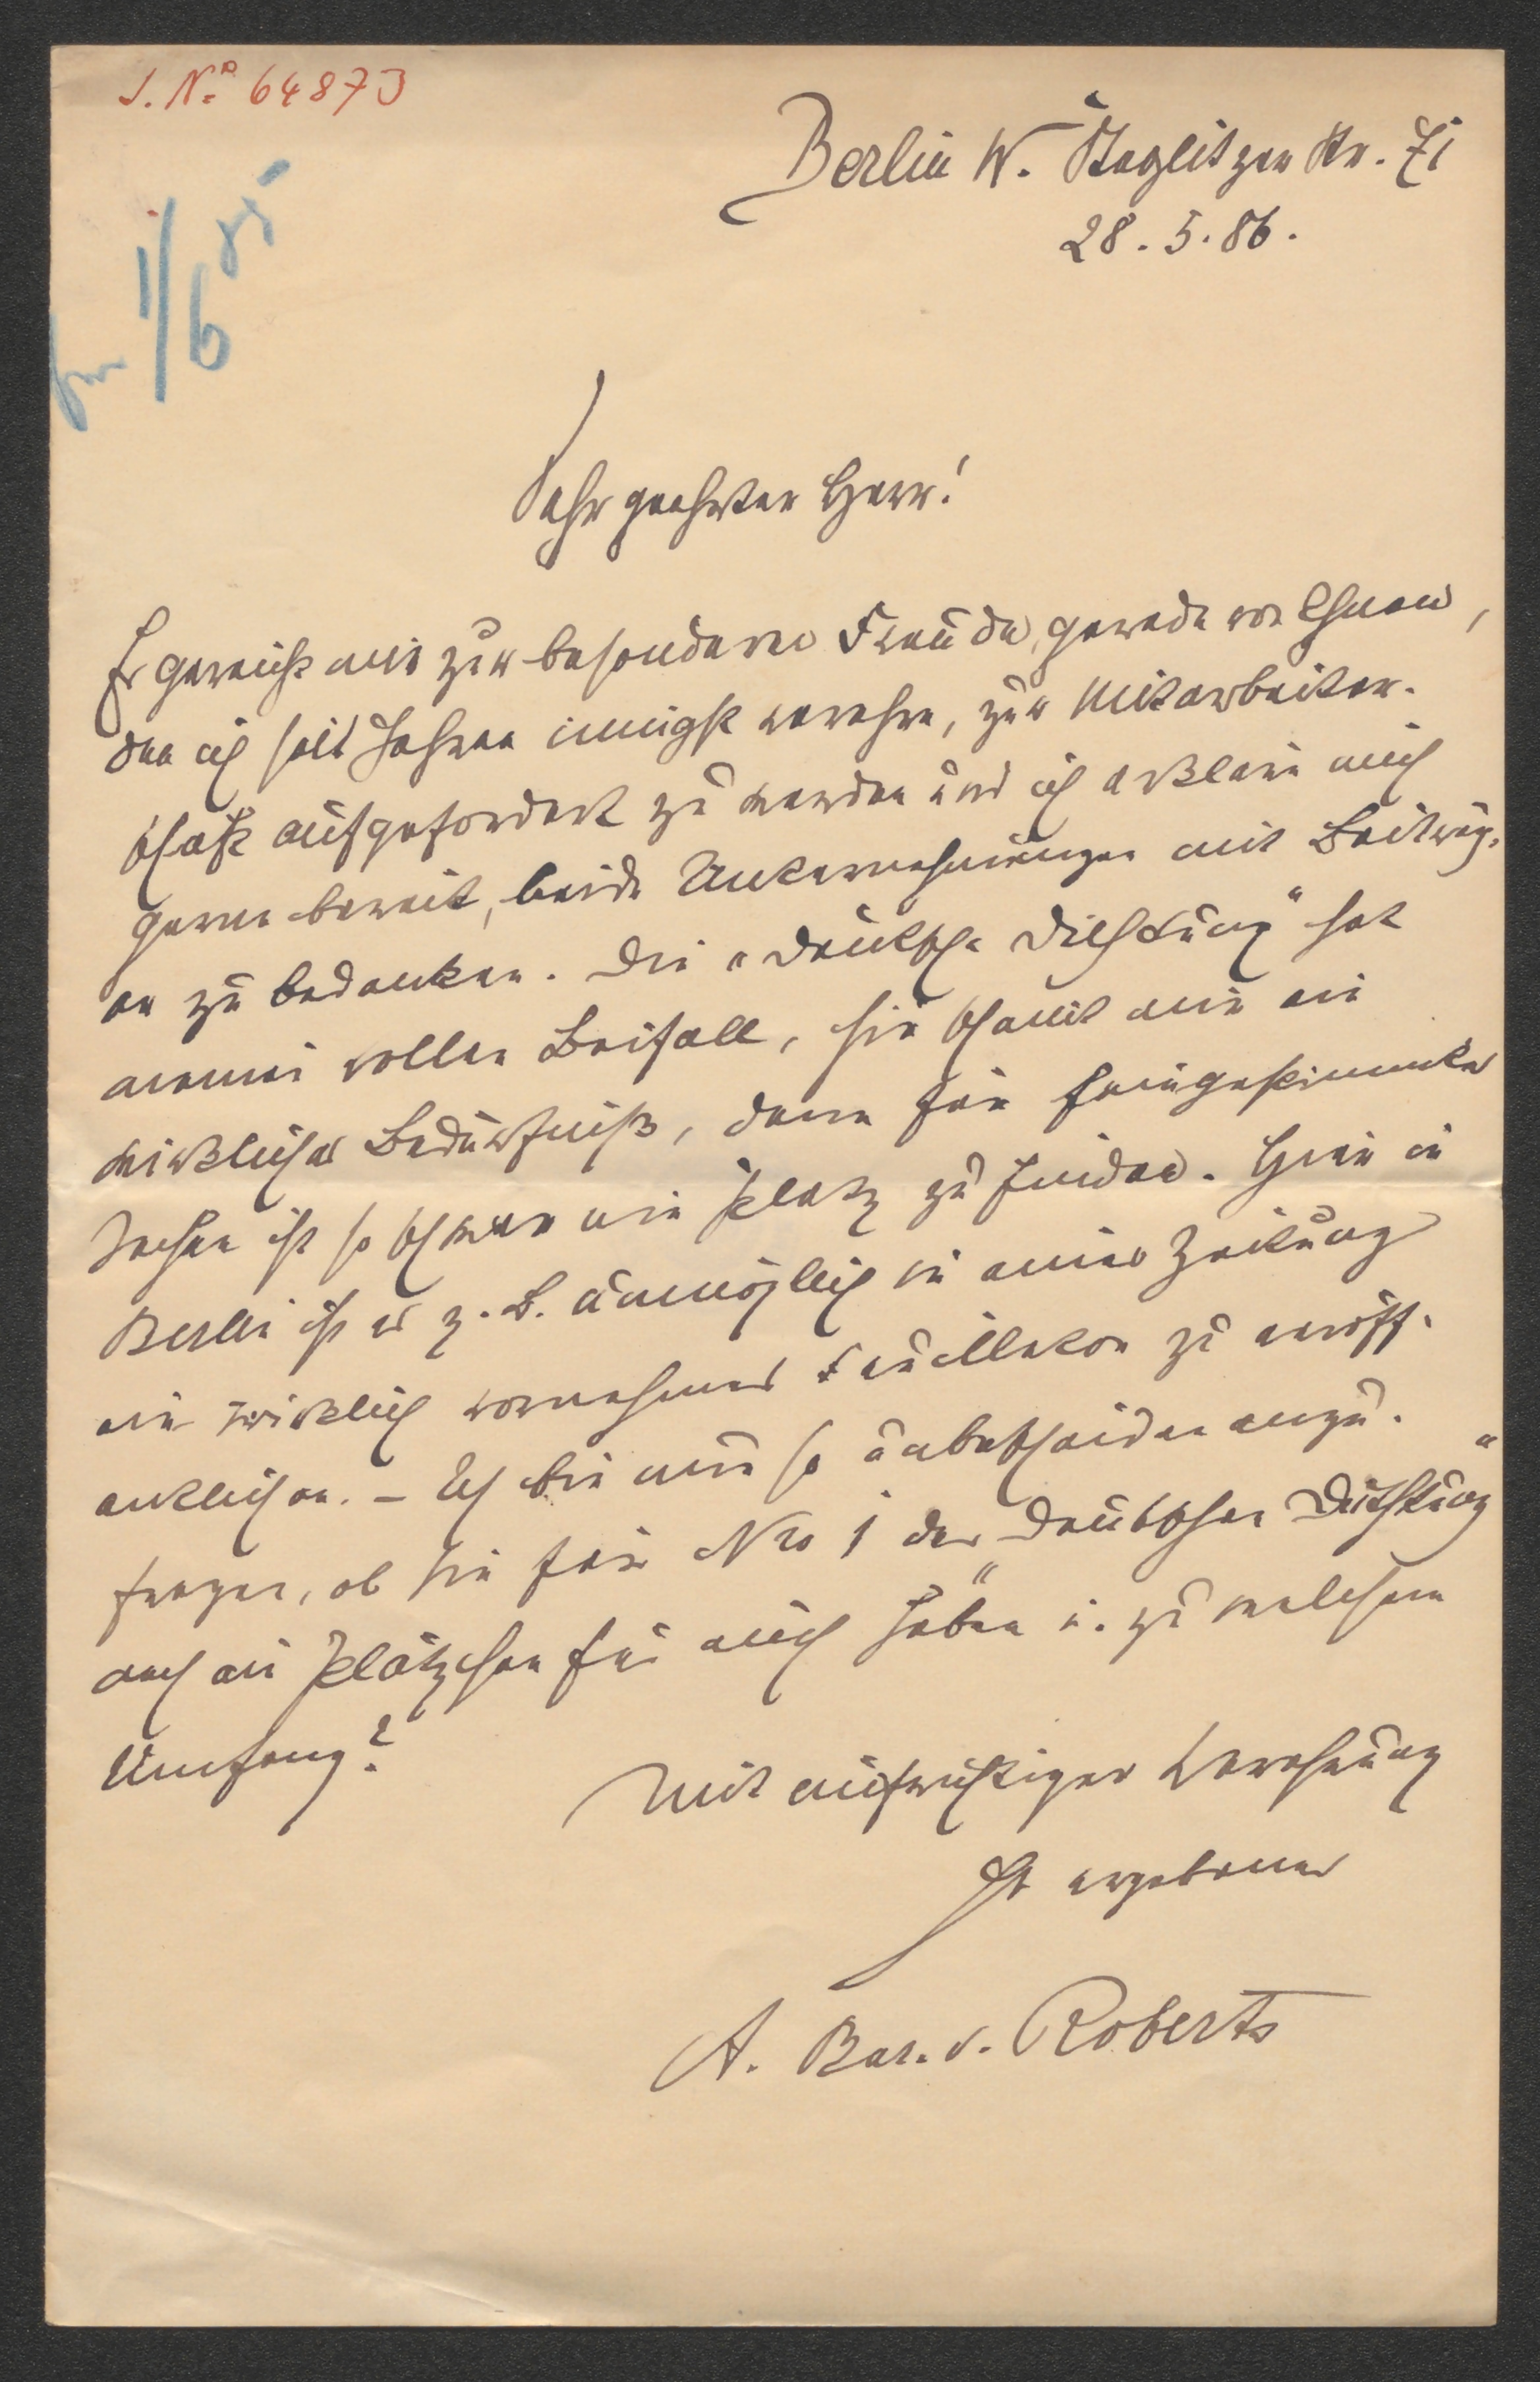 J. Nº 64873
Berlin W. Steglitzer Str. 71
28. 5. 86.
1/6
Sehr geehrter Herr!
Es gereicht mir zur besonderen Freude, gerade von Ihnen,
den ich seit Jahren innigst verehre, zur Mitarbeiter-
schaft aufgefordert zu werden und ich erkläre mich
gerne bereit, beide Unternehmungen mit Beiträg-
en zu bedenken. Die "Deutsche Dichtung" hat
meinen vollen Beifall, sie scheint mir ein
wirkliches Bedürfniß, denn für feingestimmte
Sachen ist so schwer ein Platz zu finden. Hier in
Berlin ist es z. B. unmöglich in einer Zeitung
ein wirklich vornehmes Feuilleton zu veröff-
entlichen. – Ich bin nun so unbescheiden anzu-
fragen, ob Sie für Nro 1 der "Deutschen Dichtung"
noch ein Plätzchen für mich haben u. zu welchem
Umfang?
Mit aufrichtiger Verehrung
Ihr ergebener
A. Bar. v. Roberts